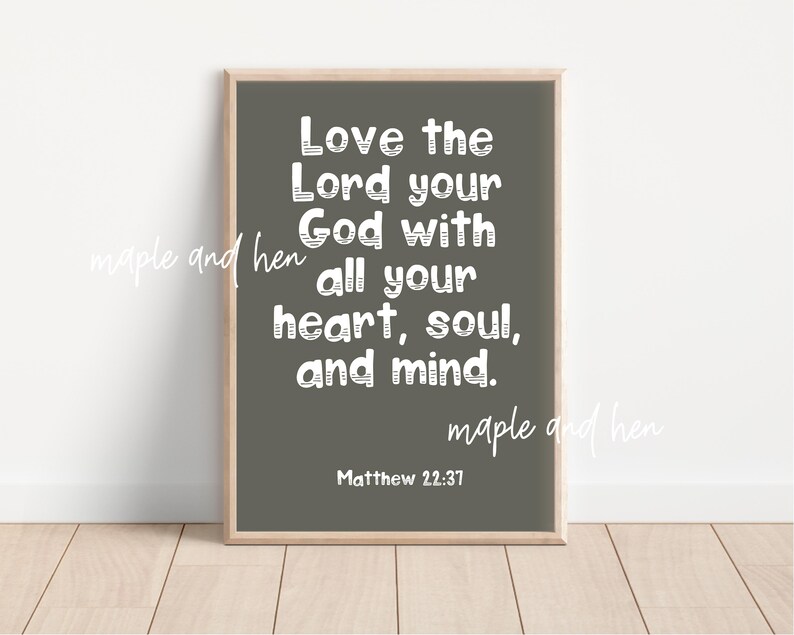 Love the
Lord your
God with
maple and hen
all your
heart, soul,
and mind.
maple and hen
Matthew 22:37